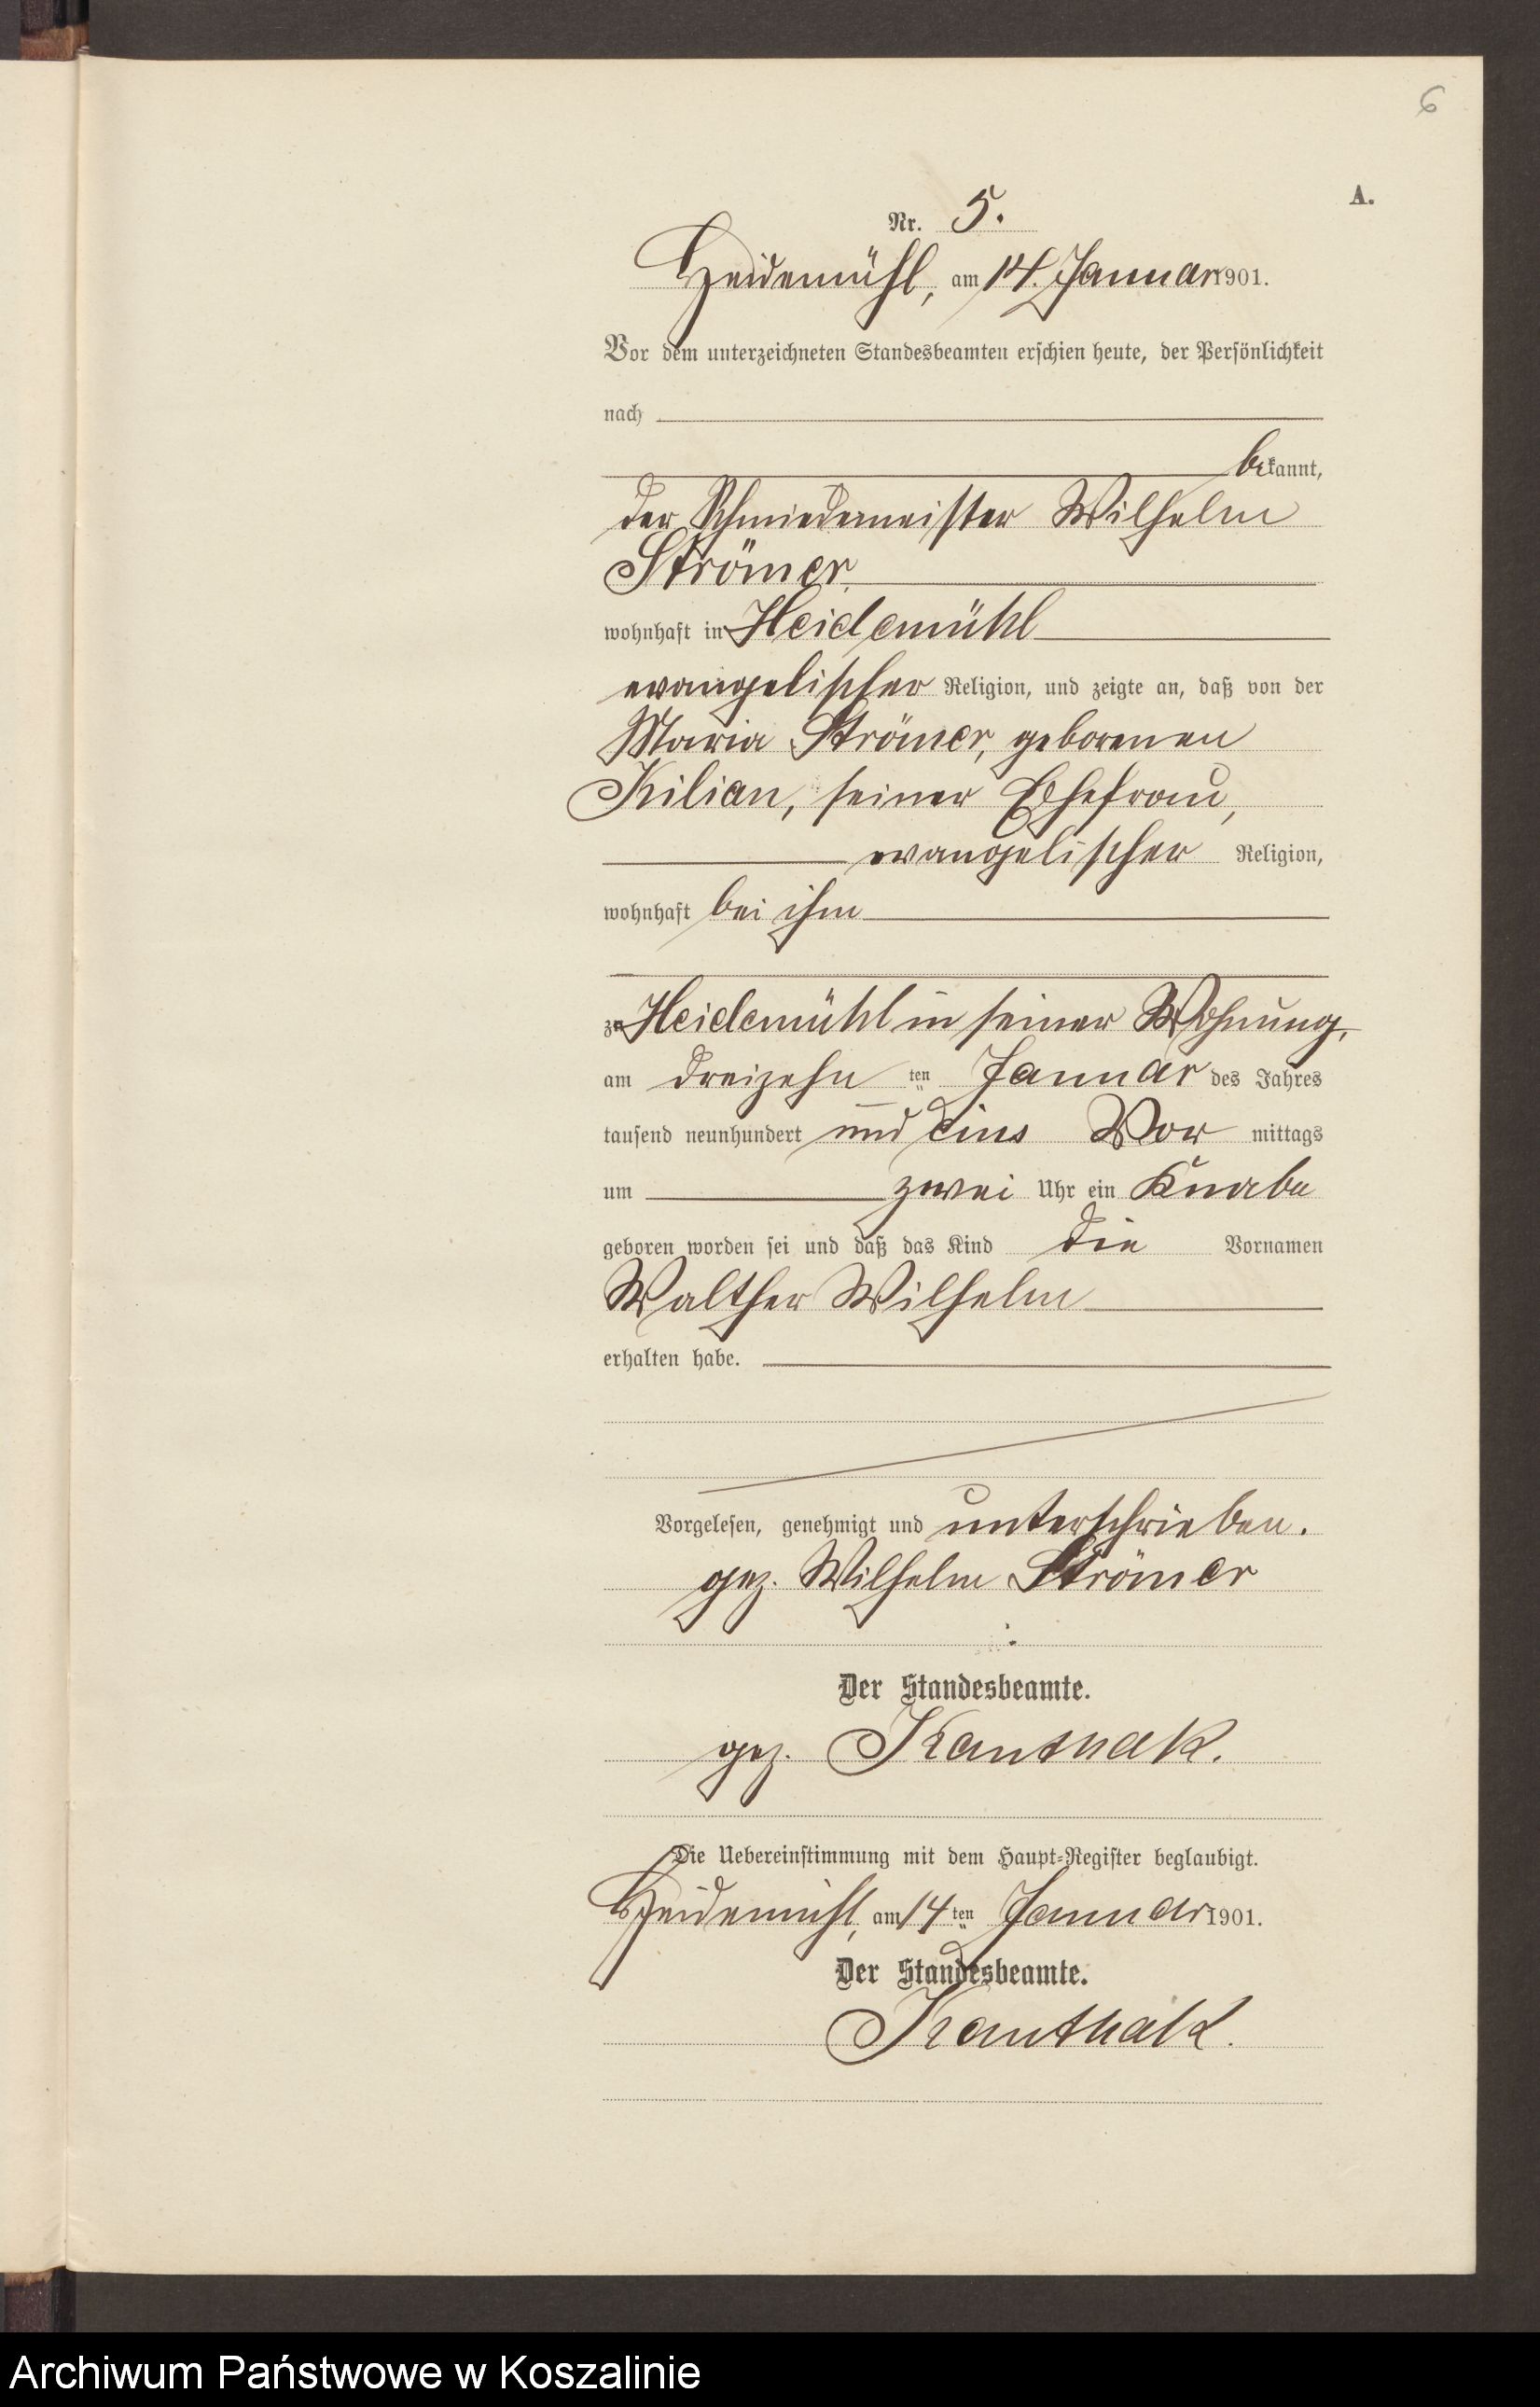 6
A.
Nr. 5.
Heidemühl, am 14. Januar 1901.
Vor dem unterzeichneten Standesbeamten erschien heute, der Persönlichkeit
nach
bekannt,
der Schmiedemeister Wilhelm
Strömer
wohnhaft in Heidemühl
evangelischer Religion, und zeigte an, daß von der
Maria Strömer, geborenen
Kilian, seiner Ehefrau,
evangelischer Religion,
wohnhaft bei ihm
zu Heidemühl in seiner Wohnung,
am dreizehn ten Januar des Jahres
tausend neunhundert und eins Vor mittags
um zwei Uhr ein Knabe
geboren worden sei und daß das Kind die Vornamen
Walther Wilhelm
erhalten habe.
Vorgelesen, genehmigt und unterschrieben.
gez. Wilhelm Strömer
Der Standesbeamte.
gez. Kanthak.
Die Uebereinstimmung mit dem Haupt-Register beglaubigt.
Heidemühl, am 14ten Januar 1901.
Der Standesbeamte.
Kanthak.
Archiwum Państwowe w Koszalinie